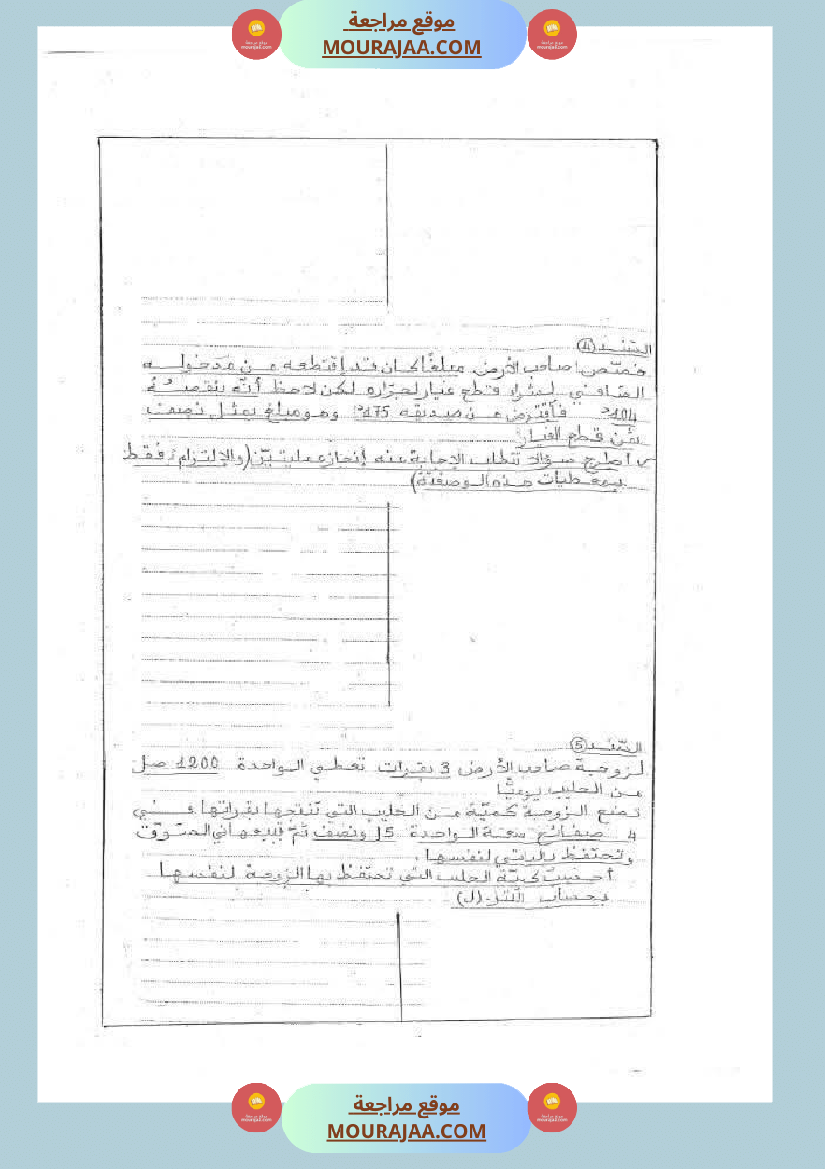 موقع مراجعة
MOURAJAA.COM
السّنــد ④
خصّص صاحب الأرض مبلغا كان قد اقتطعه من مدخوله
الصّافي لشراء قطع غيار لجرّاره لكن لاحظ أنّه ينقصه
104د فاقترض من صديقه 475د وهو مبلغ يمثل نصف
ثمن قطع الغيار
اطرح سؤالا تتطلب الإجابة عنه إنجاز عمليتين (والالتزام فقط
بمعطيات هذه الوضعيّة)
السّنــد ⑤
لزوجة صاحب الأرض 3 بقرات تعطي الواحدة 1200 صل
من الحليب يوميّا
تضع الزوجة كميّة من الحليب التي تنتجها بقراتها في
4 صفائح سعة الواحدة 5ل ونصف ثمّ تبيعها في السّوق
وتحتفظ بالباقي لنفسها.
أحسب كميّة الحليب التي تحتفظ بها الزوجة لنفسها
بحساب اللتر (ل)
موقع مراجعة
MOURAJAA.COM